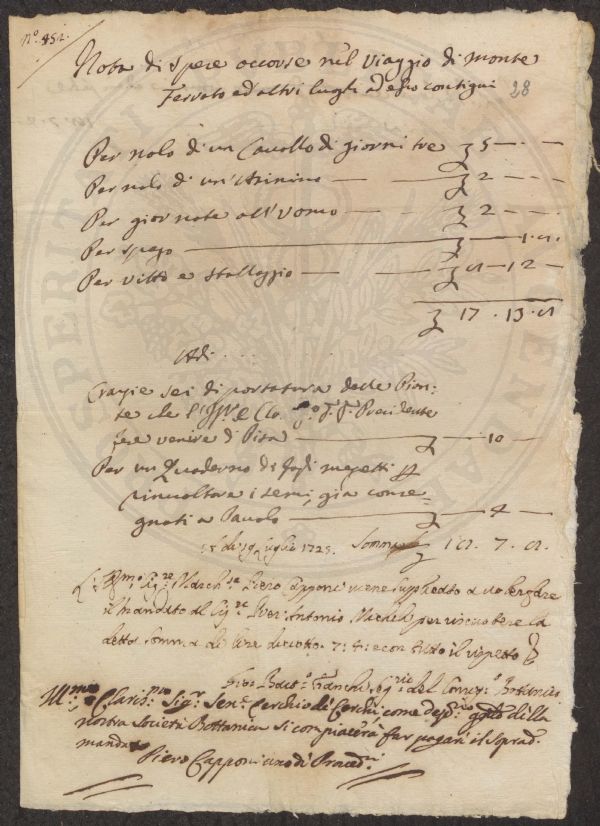 N.° 452.
Nota di spese occorse nel viaggio di monte
Ferrato ed altri luoghi ad esso contigui
28
Per nolo di un Cavallo di giorni tre — 5 — · —
Per nolo di un'Asinino — 2 — · —
Per giornate all'Uomo — 2 — · —
Per spago — 1 ·
Per vitto e stallaggio — — 12 —
17 · 13 ·
Adi
Crazie sei di portatura delle Pian-
te che l' Presidente
fece venire di Pisa — 10 —
Per un Quaderno di fogli
rinvoltare i semi, già conse-
gnati a Paolo — 4 —
Luglio 1725. Somma 7 ·
March.se Piero Capponi viene supplicato a
il mandato al Sig.re Antonio Micheli per riscuotere la
detta somma di lire diciotto, 7: con tutto il rispetto
Franchi del
Ill.mo Claris.mo Sig.r Sen.e Cerchio de Cerchi, come
nostra Società Bottanica si compiacerà far pagare il soprad.
mandato
Piero Capponi uno di